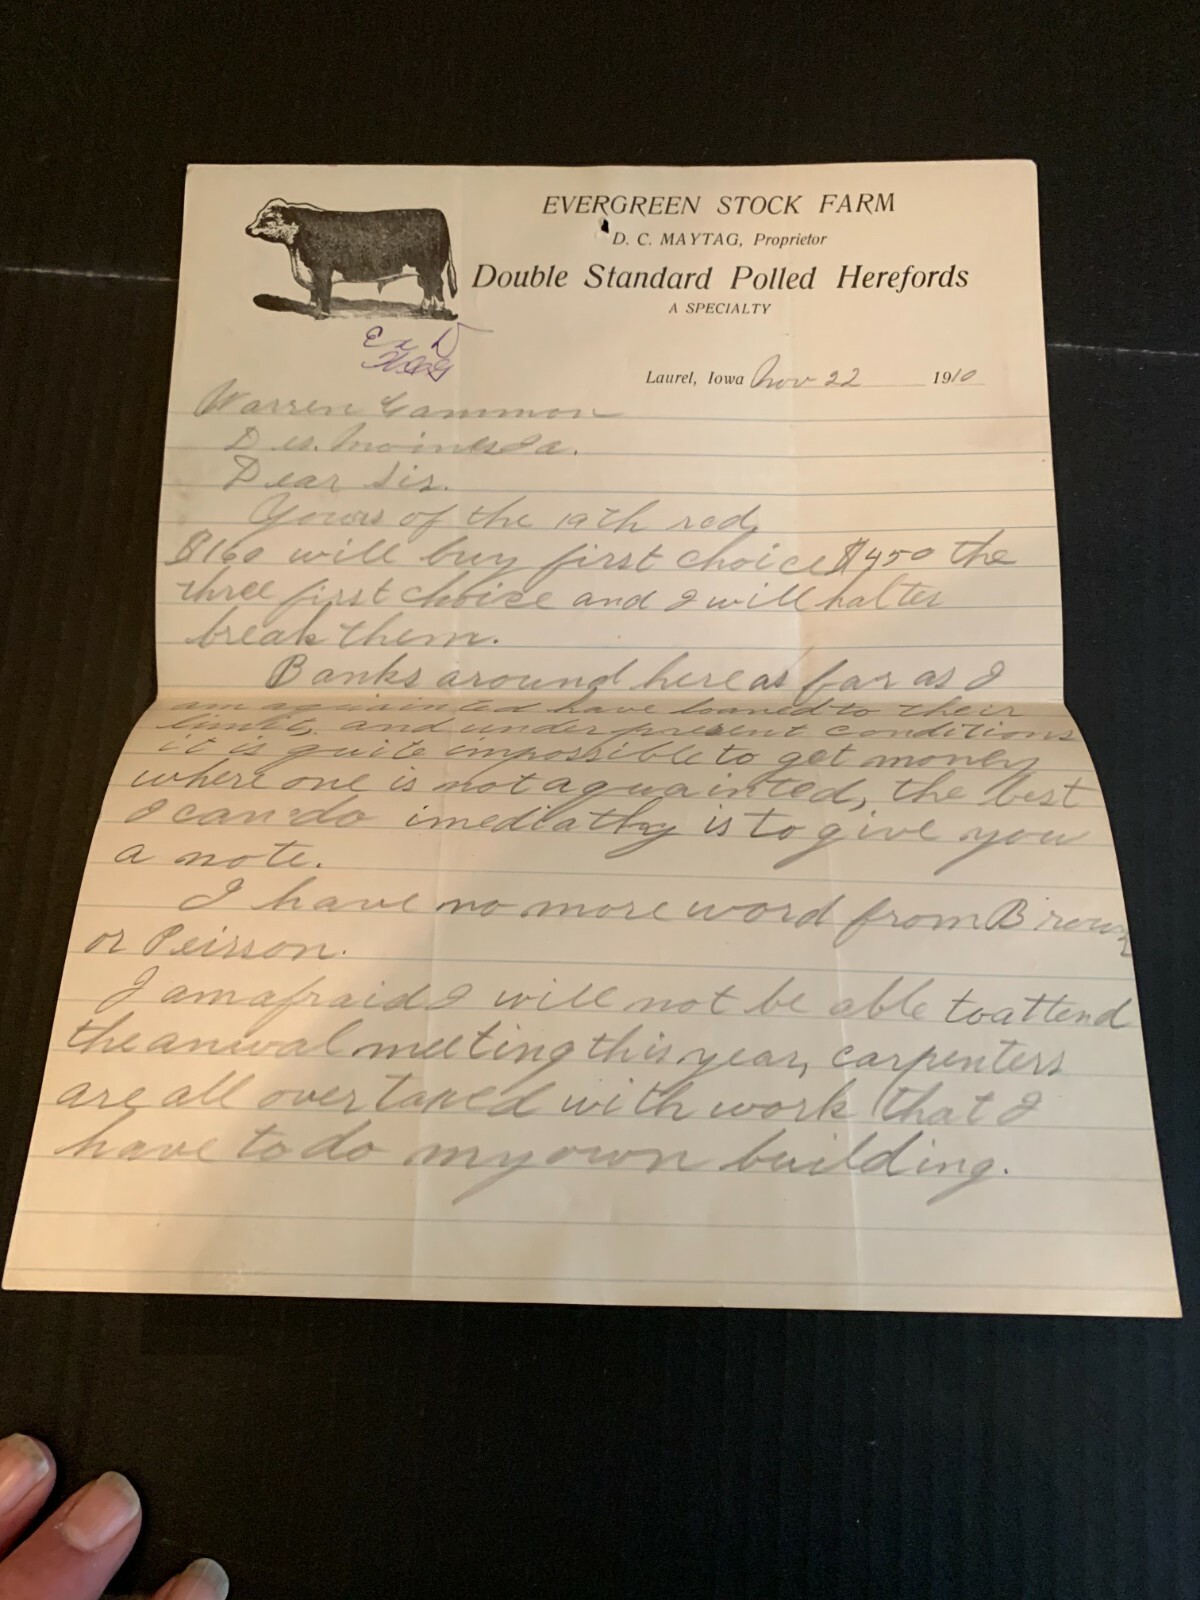 EVERGREEN STOCK FARM
D. C. MAYTAG, Proprietor
Double Standard Polled Herefords
A SPECIALTY
Ex D
Laurel, Iowa Nov 22 1910
Warren Gammon
Des. Moines Ia.
Dear Sir.
Yours of the 19th recd,
$160 will buy first choice $450 the
three first choice and I will halter
break them.
Banks around here as far as I
am aquainted have loaned to their
limit, and under present conditions
it is quite impossible to get money
where one is not aquainted, the best
I can do imediatly is to give you
a note.
I have no more word from Brown
or Peirson.
I am afraid I will not be able to attend
the anual meeting this year, carpenters
are all over taxed with work that I
have to do my own building.